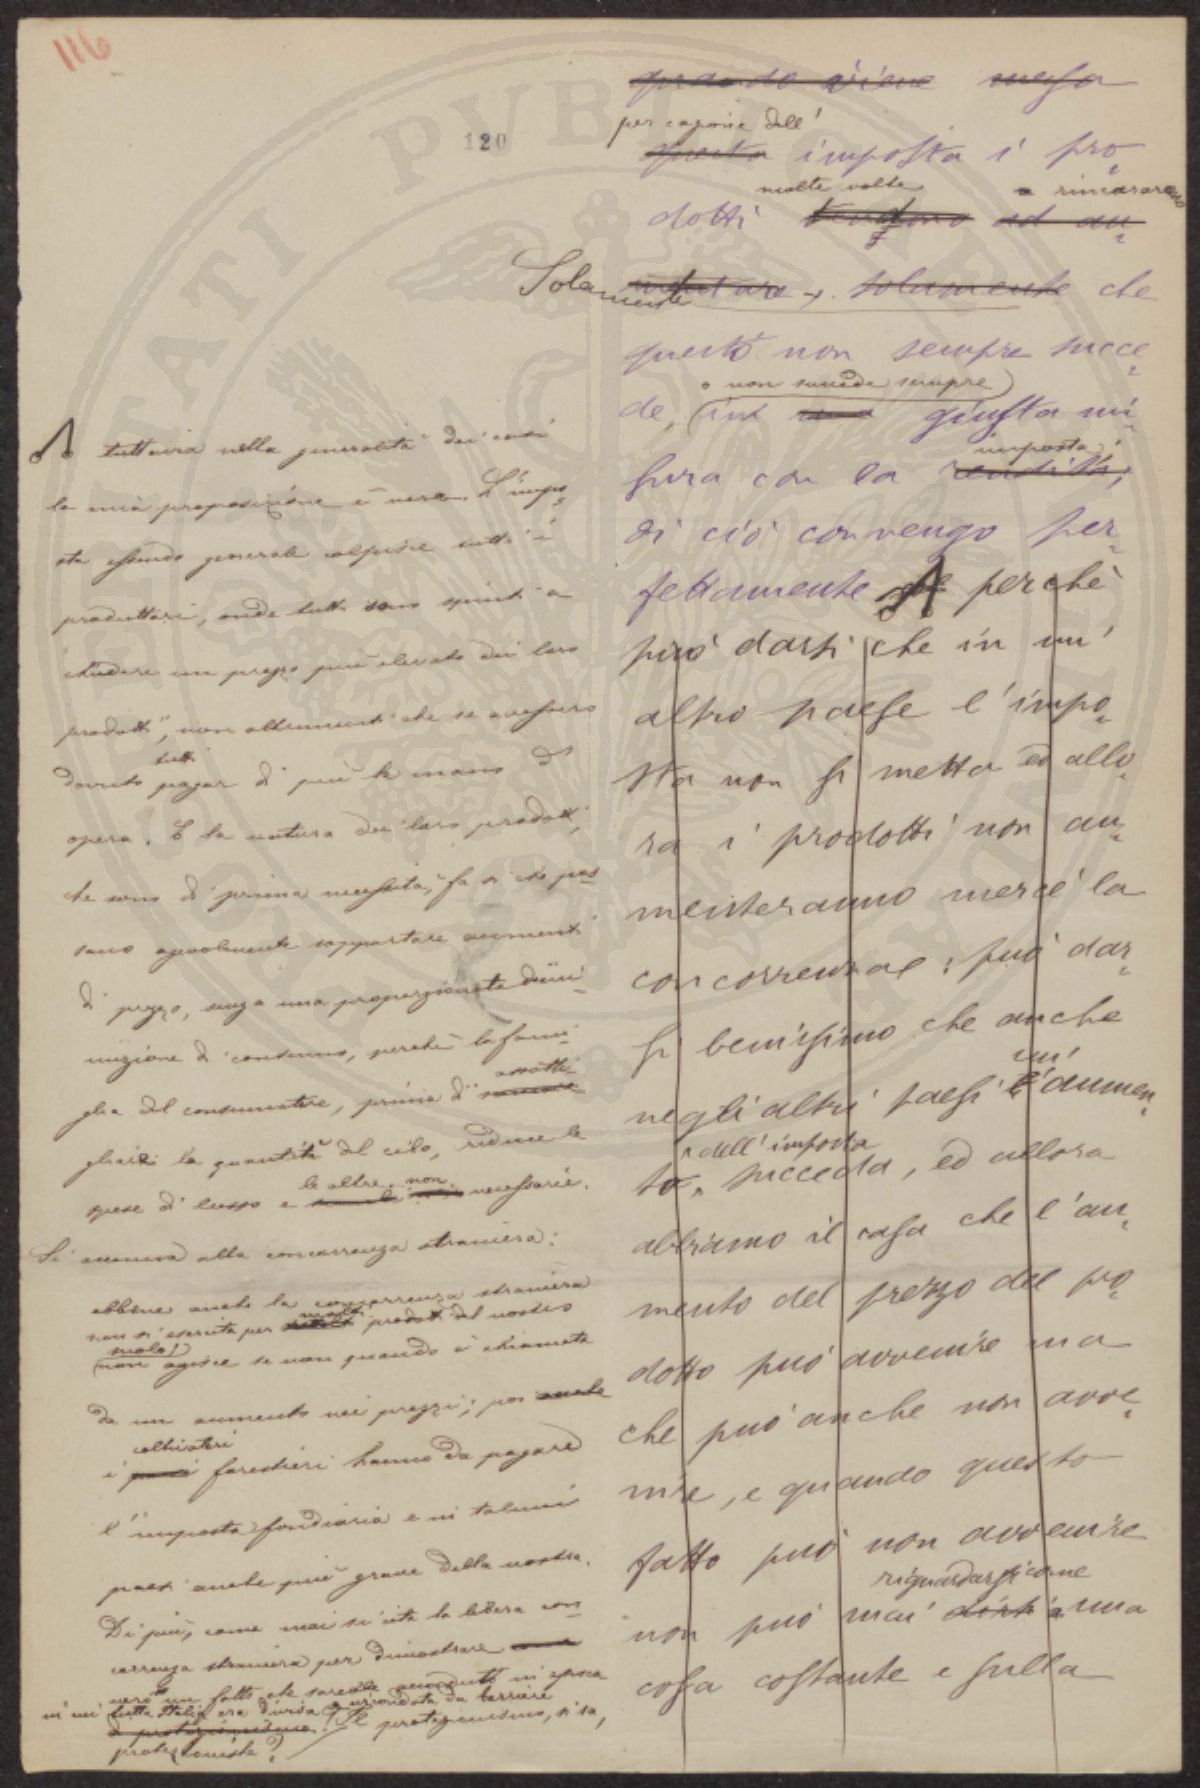 116
120
quando viene messa
per cagione dell'
questa imposta i pro-
molte volte a rincararono
dotti tendono ad au-
Solamente mentare, solamente che
questo non sempre succe-
o non succede sempre
de, in giusta mi-
imposta;
sura con la rendita;
di ciò convengo per-
fettamente perchè
può darsi che in un'
altro paese l'impo-
sta non si metta ed allo-
ra i prodotti non au-
menteranno mercè la
concorrenza: può dar-
si benissimo che anche
un'
negli altri paesi l'aumen-
dell'imposta
to, succeda, ed allora
abbiamo il caso che l'au-
mento del prezzo del pro-
dotto può avvenire ma
che può anche non avve-
nire, e quando questo
fatto può non avvenire
riguardarsi come
non può mai dirsi una
cosa costante e sulla
tuttavia nella generalità dei casi
la mia proposizione è vera. L'impo-
sta essendo generale colpisce tutti i
produttori, onde tutti sono spinti a
chiedere un prezzo più elevato dei loro
prodotti, non altrimenti che se avessero
tutti
dovuto pagar di più la mano d'
opera. E la natura dei loro prodotti,
che sono di prima necessità, fa sì che pos-
sano agevolmente sopportare aumenti
di prezzo, senza una proporzionata dimi-
nuzione di consumo, perchè la fami-
assotti-
glia del consumatore, prima di
gliare la quantità del cibo, riduce le
le altre non
spese di lusso e necessarie.
Si accenna alla concorrenza straniera:
ebbene anche la concorrenza straniera
molti
non si esercita per prodotti del nostro
suolo,
non agisce se non quando è chiamata
da un aumento nei prezzi; poi anche
coltivatori
i forestieri hanno da pagare
l'imposta fondiaria e in taluni
paesi anche più grave della nostra.
Di più, come mai si cita la libera con-
correnza straniera per dimostrare
vero un fatto che sarebbe accaduto in epoca
in cui tutta Italia era divisa e circondata da barriere
di protezionismo. Il protezionismo, si sa,
protezioniste?